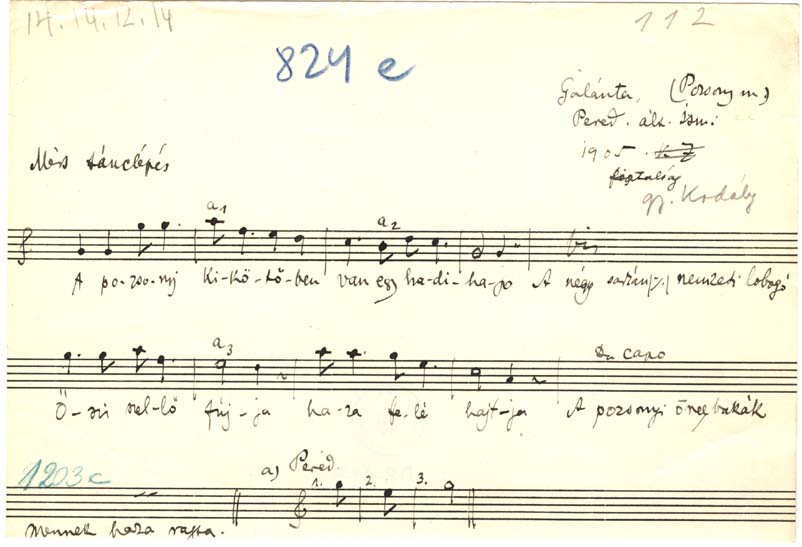 14. 14. 12. 14
112
824 e
Galánta, (Pozsony m)
Pered. ált. ism:
1905.
fiatalság
gy. Kodály
Mérs tánclépés
a1 a2
A po-zso-nyi Ki-kö-tő-ben van egy ha-di-ha-jo bis A négy sarkán /:/ nemzeti lobogó
a3 Da capo
Ő-szi szel-lő fúj-ja ha-za fe-lé hajt-ja A pozsonyi öreg bakák
1203c
a) Pered.
1. 2. 3.
Mennek haza rajta.